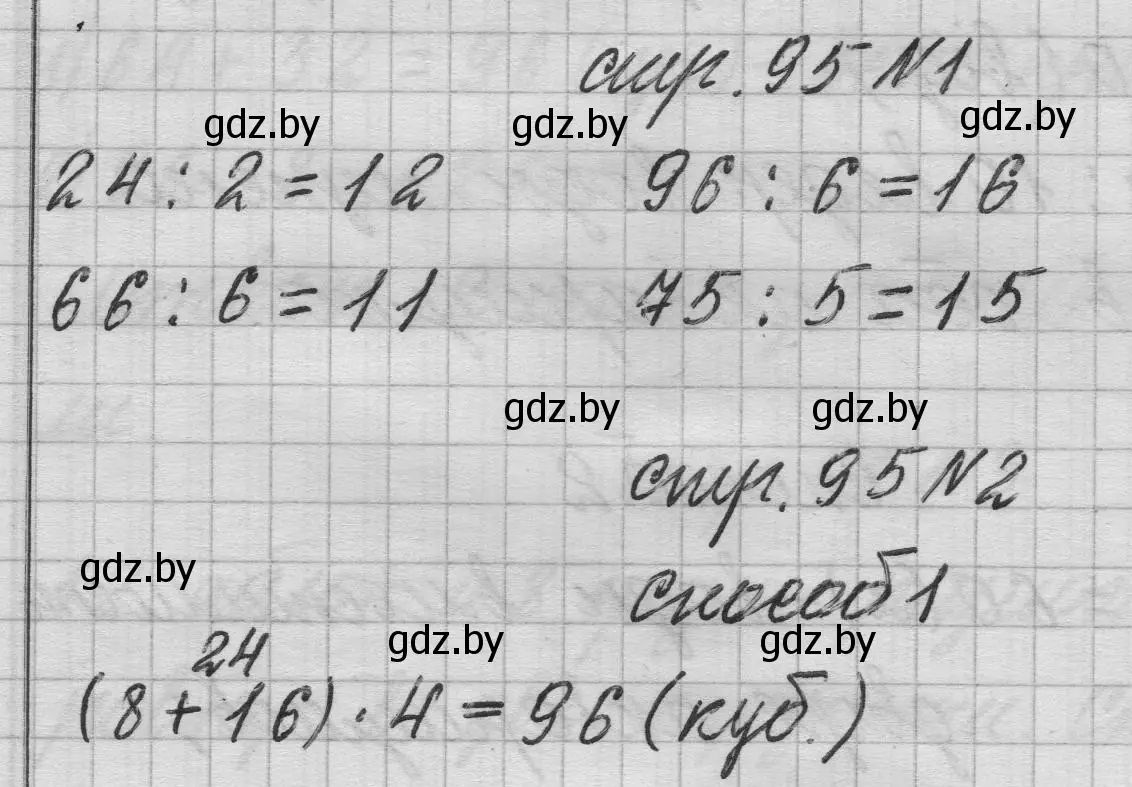 стр. 95 №1
gdz.by gdz.by gdz.by
24 : 2 = 12 96 : 6 = 16
66 : 6 = 11 75 : 5 = 15
gdz.by gdz.by
стр. 95 №2
gdz.by
способ 1
gdz.by gdz.by
24
(8 + 16) · 4 = 96 (куб.)